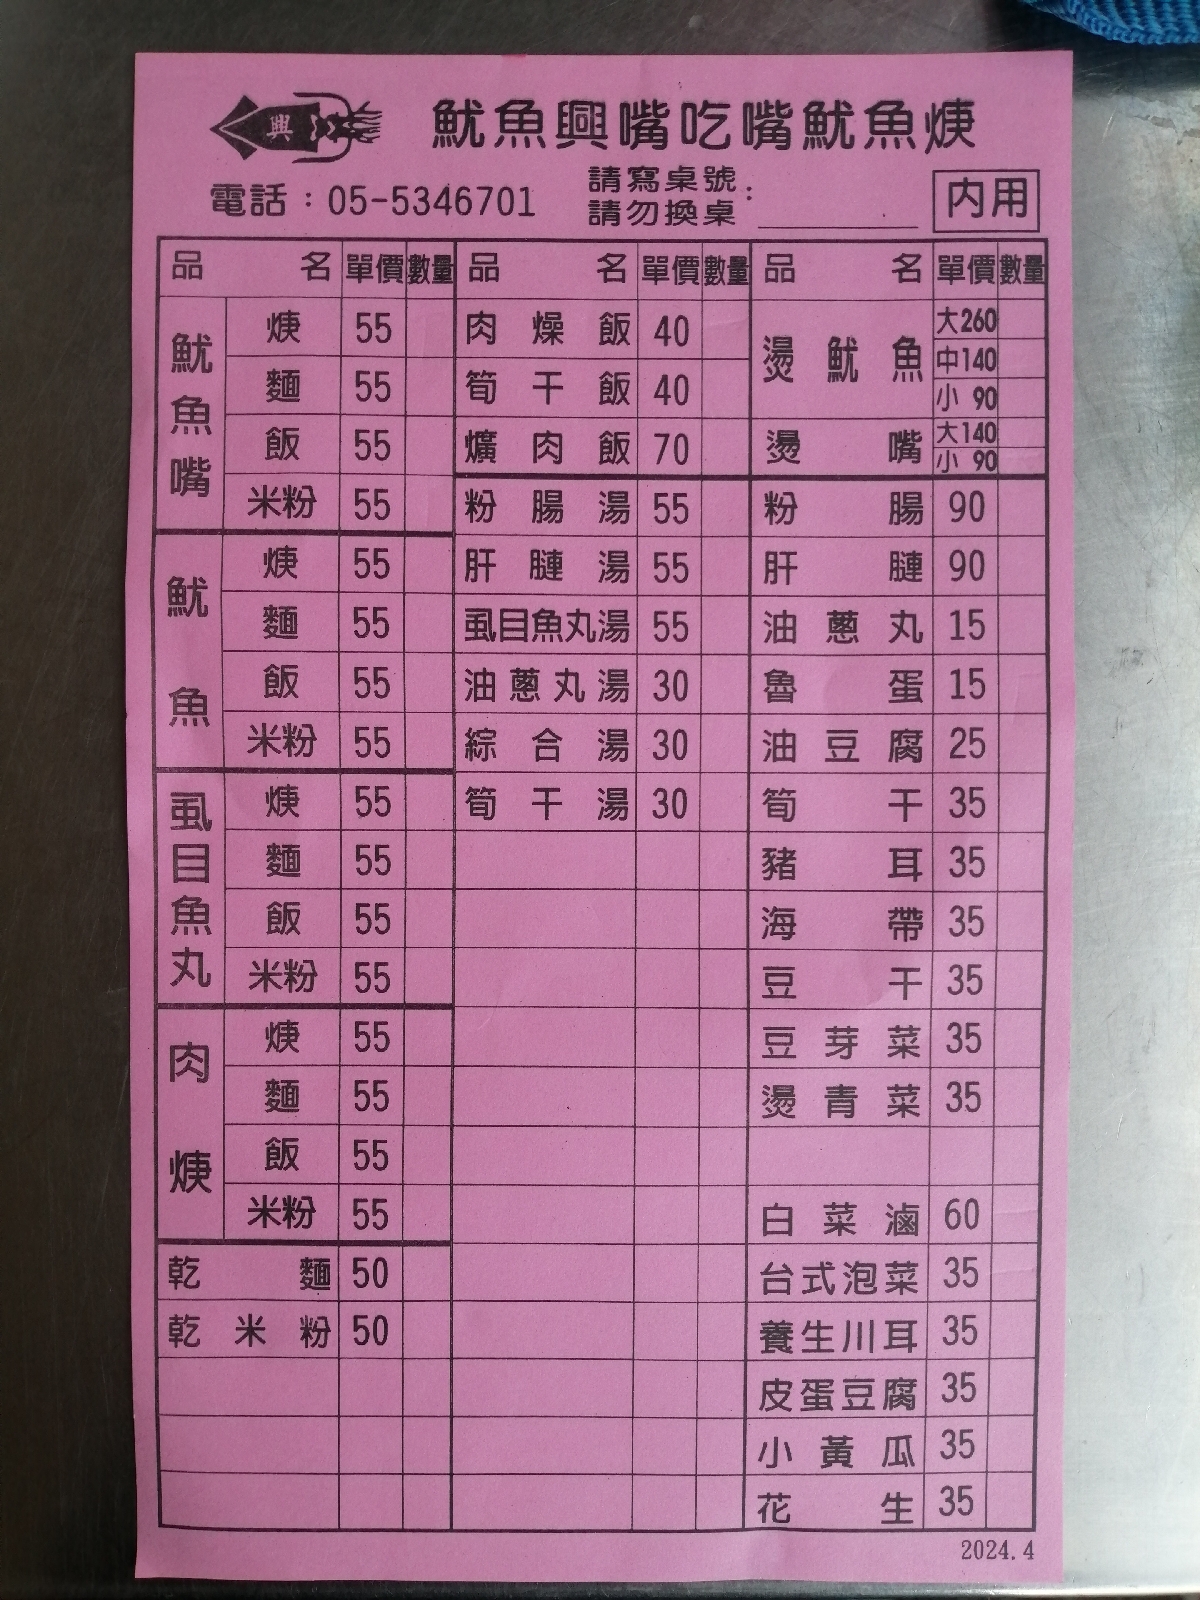 興
魷魚興嘴吃嘴魷魚焿
電話：05-5346701
請寫桌號
請勿換桌：
內用
品名 單價 數量
魷魚嘴
焿 55
麵 55
飯 55
米粉 55
魷魚
焿 55
麵 55
飯 55
米粉 55
虱目魚丸
焿 55
麵 55
飯 55
米粉 55
肉焿
焿 55
麵 55
飯 55
米粉 55
乾麵 50
乾米粉 50
品名 單價 數量
肉燥飯 40
筍干飯 40
爌肉飯 70
粉腸湯 55
肝膽湯 55
虱目魚丸湯 55
油蔥丸湯 30
綜合湯 30
筍干湯 30
品名 單價 數量
燙魷魚
大260
中140
小 90
燙嘴
大140
小 90
粉腸 90
肝膽 90
油蔥丸 15
魯蛋 15
油豆腐 25
筍干 35
豬耳 35
海帶 35
豆干 35
豆芽菜 35
燙青菜 35
白菜滷 60
台式泡菜 35
養生川耳 35
皮蛋豆腐 35
小黃瓜 35
花生 35
2024.4